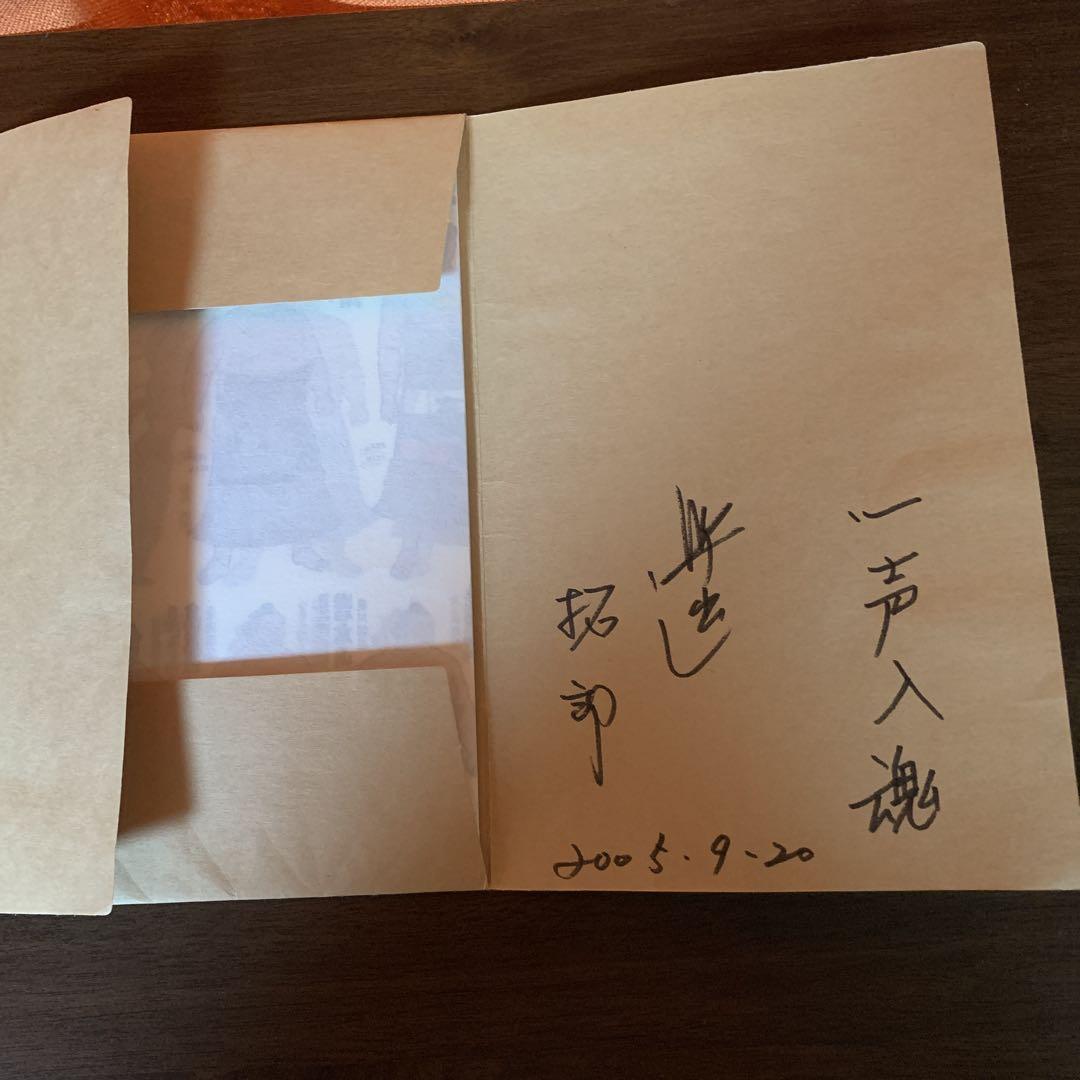 一声入魂
拓郎
2005.9.20